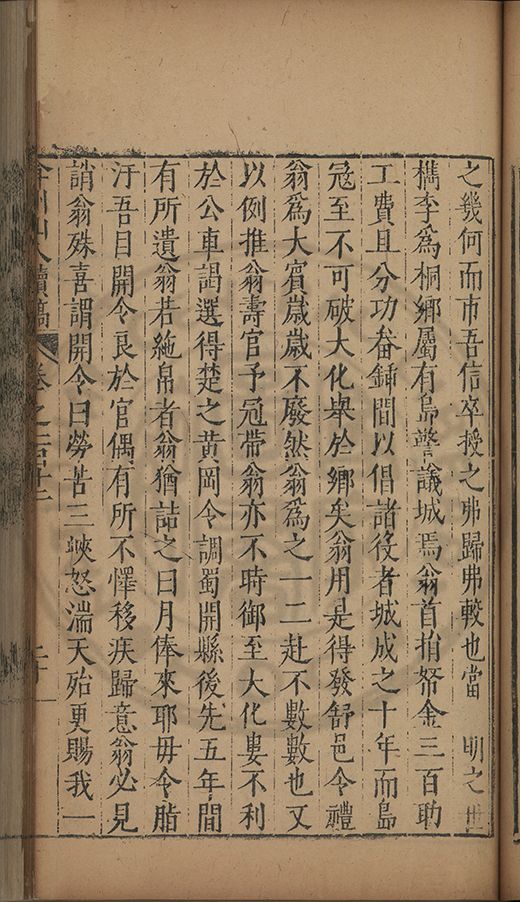 之幾何而市吾信卒授之弗歸弗較也當　明之世
檇李爲桐鄉屬有島警議城焉翁首捐帑金三百助
工費且分功畚鍤間以倡諸役者城成之十年而島
冦至不可破大化舉於鄉矣翁用是得發舒邑令禮
翁爲大賔歳歳不廢然翁爲之一二赴不數數也又
以例推翁壽官予冠帶翁亦不時御至大化婁不利
於公車謁選得楚之黄岡令調蜀開縣後先五年間
有所遺翁若絁帛者翁猶詰之曰月俸來耶毋令脂
汙吾目開令艮於官偶有所不懌移疾歸意翁必見
誚翁殊喜謂開令曰勞苦三峽怒湍天殆更賜我一
弇州山人續稿　卷之一百廿二
二十